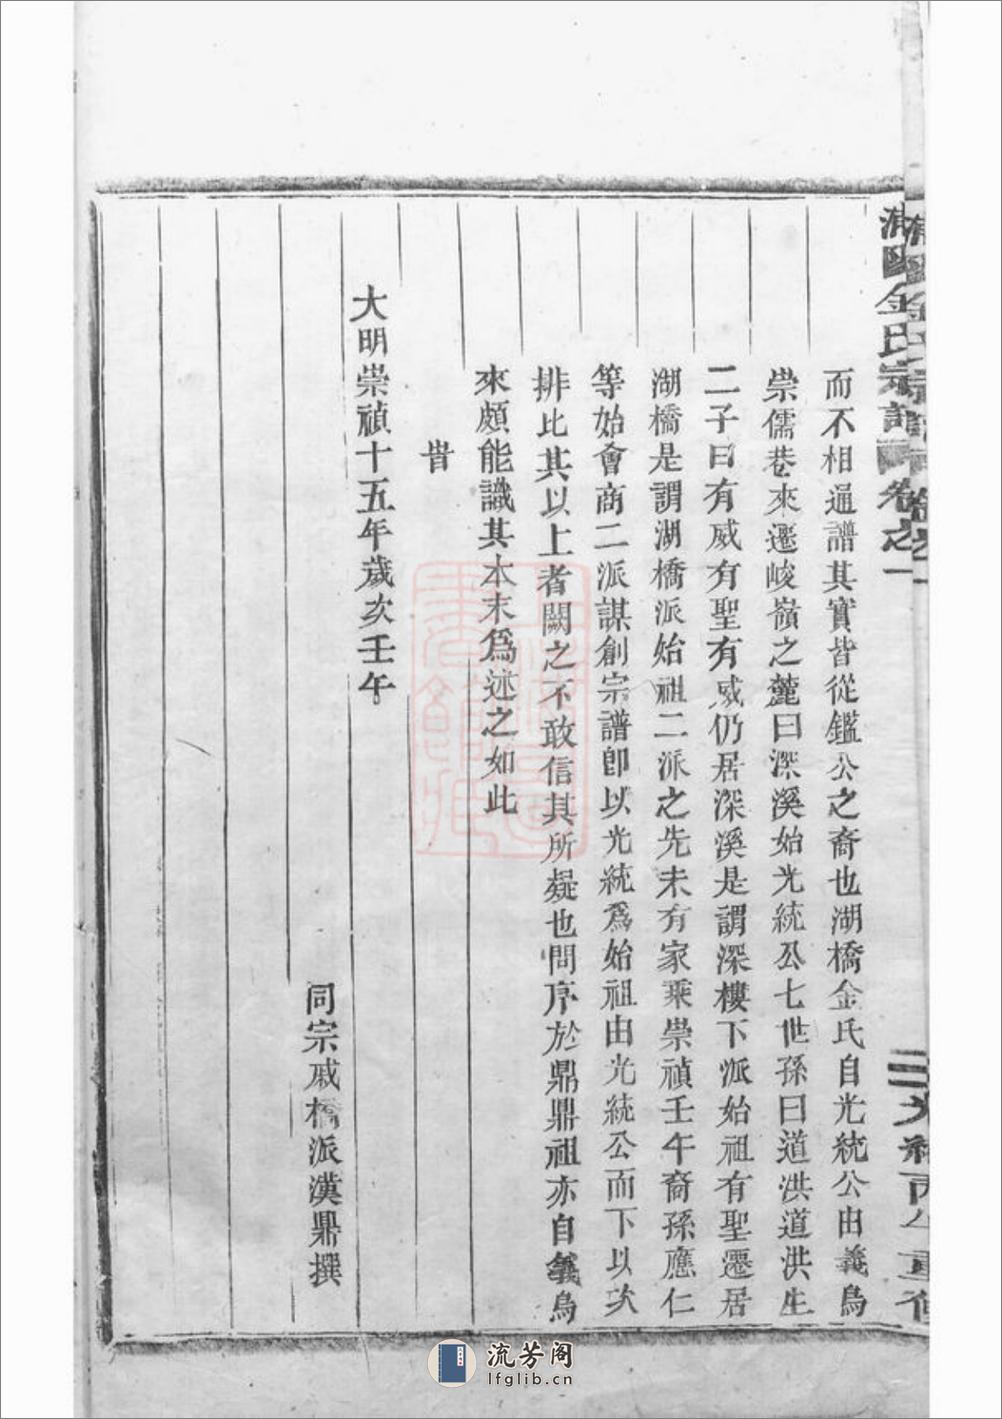 浦陽金氏宗譜 卷之一
二 光緒丙午重修
而不相通譜其實皆從鑑公之裔也湖橋金氏自光統公由義烏
崇儒巷來遷峻嶺之麓曰深溪始光統公七世孫曰道洪道洪生
二子曰有威有聖有威仍居深溪是謂深樓下派始祖有聖遷居
湖橋是謂湖橋派始祖二派之先未有家乘崇禎壬午裔孫應仁
等始會商二派謀創宗譜卽以光統爲始祖由光統公而下以次
排比其以上者闕之不敢信其所疑也問序於鼎鼎祖亦自義烏
來頗能識其本末爲述之如此
旹
大明崇禎十五年歲次壬午
同宗戚橋派漢鼎撰
流芳阁
lfglib.cn